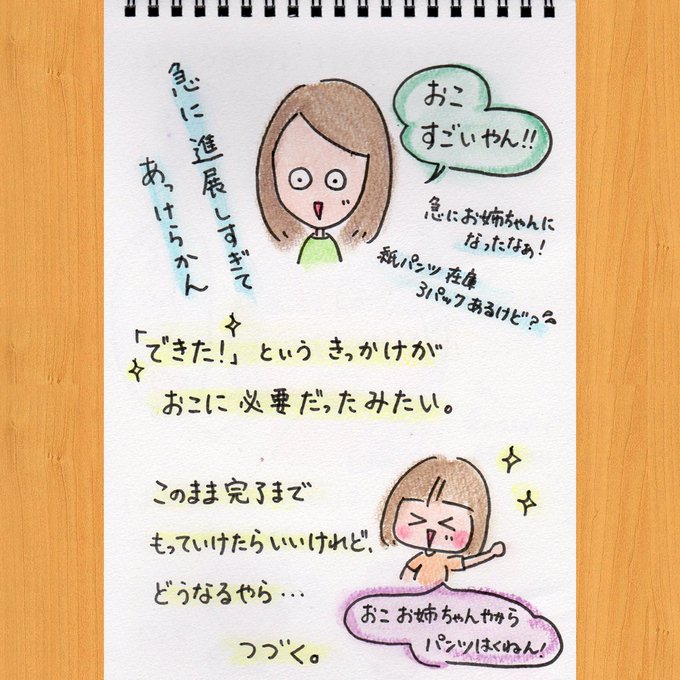 急に進展しすぎて
あっけらかん
おこ
すごいやん!!
急にお姉ちゃんに
なったなぁ!
紙パンツ在庫
3パックあるけど?
「できた!」というきっかけが
おこに必要だったみたい。
このまま完了まで
もっていけたらいいけれど、
どうなるやら…
つづく。
おこお姉ちゃんやから
パンツはくねん!